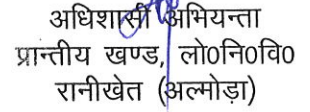 अधिशासी अभियन्ता
प्रान्तीय खण्ड, लो०नि०वि०
रानीखेत (अल्मोड़ा)